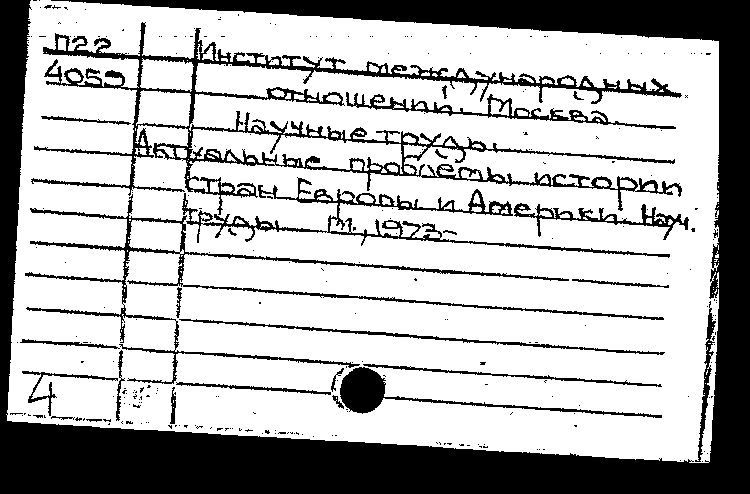 П22
4059
Институт международных
отношений. Москва.
Научные труды.
Актуальные проблемы истории
стран Европы и Америки. Науч.
труды. М., 1973-
4